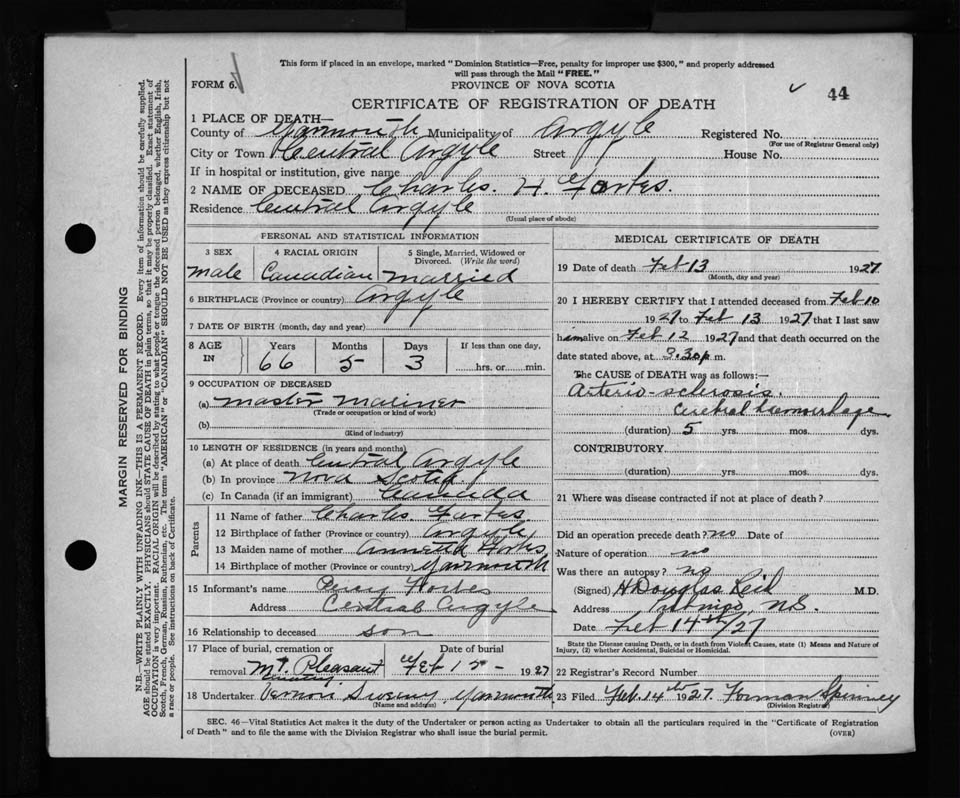 This form if placed in an envelope, marked "Dominion Statistics—Free, penalty for improper use $300," and properly addressed
will pass through the Mail "FREE."
FORM 6.
PROVINCE OF NOVA SCOTIA
44
CERTIFICATE OF REGISTRATION OF DEATH
1 PLACE OF DEATH—
County of Yarmouth Municipality of Argyle Registered No.
(For use of Registrar General only)
City or Town Central Argyle Street House No.
If in hospital or institution, give name
2 NAME OF DECEASED Charles. H. Forbes.
Residence Central Argyle
(Usual place of abode)
PERSONAL AND STATISTICAL INFORMATION
3 SEX 4 RACIAL ORIGIN 5 Single, Married, Widowed or
Divorced. (Write the word)
male Canadian Married
6 BIRTHPLACE (Province or country) Argyle
7 DATE OF BIRTH (month, day and year)
8 AGE IN Years Months Days If less than one day,
66 5 3 hrs. or min.
9 OCCUPATION OF DECEASED
(a) Master Mariner
(Trade or occupation or kind of work)
(b)
(Kind of industry)
10 LENGTH OF RESIDENCE (in years and months)
(a) At place of death Central Argyle
(b) In province Nova Scotia
(c) In Canada (if an immigrant) Canada
Parents
11 Name of father Charles. Forbes
12 Birthplace of father (Province or country) Argyle
13 Maiden name of mother
14 Birthplace of mother (Province or country) Yarmouth
15 Informant's name Percy Forbes
Address Central Argyle
16 Relationship to deceased son
17 Place of burial, cremation or Date of burial
removal Mt. Pleasant Feb 15 - 1927
18 Undertaker Vernon Sweeny Yarmouth
(Name and address)
MEDICAL CERTIFICATE OF DEATH
19 Date of death Feb 13 1927
(Month, day and year)
20 I HEREBY CERTIFY that I attended deceased from Feb 10
1927 to Feb 13 1927 that I last saw
him alive on Feb 12 1927 and that death occurred on the
date stated above, at 8.30 p m.
The CAUSE OF DEATH was as follows:—
Arterio-sclerosis.
Cerebral hemorrhage
(duration) 5 yrs. mos. dys.
CONTRIBUTORY
(duration) yrs. mos. dys.
21 Where was disease contracted if not at place of death?
Did an operation precede death? no Date of
Nature of operation no
Was there an autopsy? no
(Signed) H Douglas Reid M.D.
Address N.S.
Date Feb 14th/27
State the Disease causing Death, or in death from Violent Causes, state (1) Means and Nature of
Injury, (2) whether Accidental, Suicidal or Homicidal.
22 Registrar's Record Number
23 Filed Feb. 14th 1927. Forman Spinney
(Division Registrar)
SEC. 46—Vital Statistics Act makes it the duty of the Undertaker or person acting as Undertaker to obtain all the particulars required in the "Certificate of Registration
of Death" and to file the same with the Division Registrar who shall issue the burial permit.
(OVER)
MARGIN RESERVED FOR BINDING
N.B.—WRITE PLAINLY WITH UNFADING INK—THIS IS A PERMANENT RECORD. Every item of information should be carefully supplied.
AGE should be stated EXACTLY. PHYSICIANS should STATE CAUSE OF DEATH in plain terms, so that it may be properly classified. Exact statement of
OCCUPATION is very important. RACIAL ORIGIN will be described by stating to what people or tongue the deceased person belonged, whether English, Irish,
Scotch, French, German, Russian, Ruthenian, etc. The terms "AMERICAN" or "CANADIAN" SHOULD NOT BE USED as they express citizenship but not
a race or people. See instructions on back of Certificate.